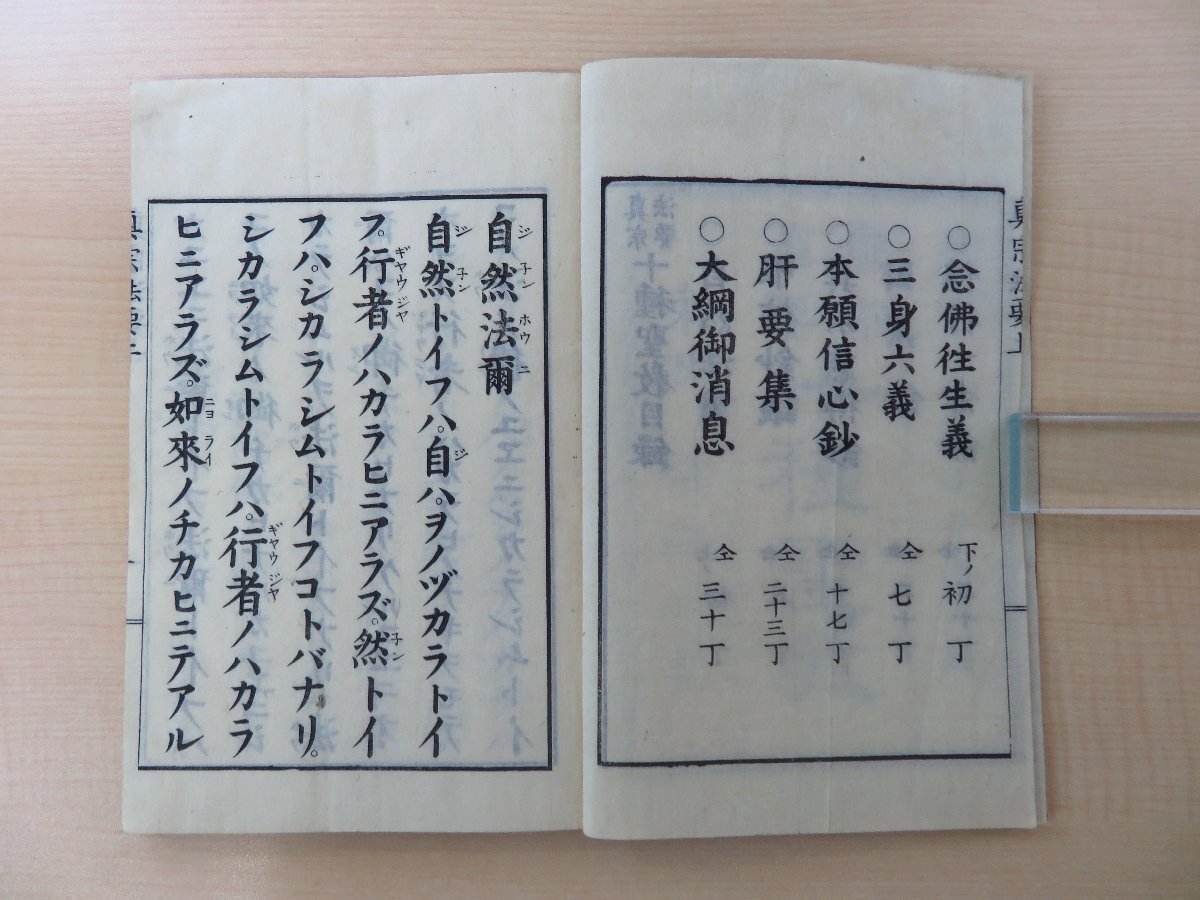 ○念佛往生義 下ノ初丁
○三身六義 仝七丁
○本願信心鈔 仝十七丁
○肝要集 仝二十三丁
○大綱御消息 仝三十丁
自然法爾
自然トイフハ。自ハ。ヲノヅカラトイ
フ。行者ノハカラヒニアラズ。然トイ
フハ。シカラシムトイフコトバナリ。
シカラシムトイフハ。行者ノハカラ
ヒニアラズ。如來ノチカヒニテアル